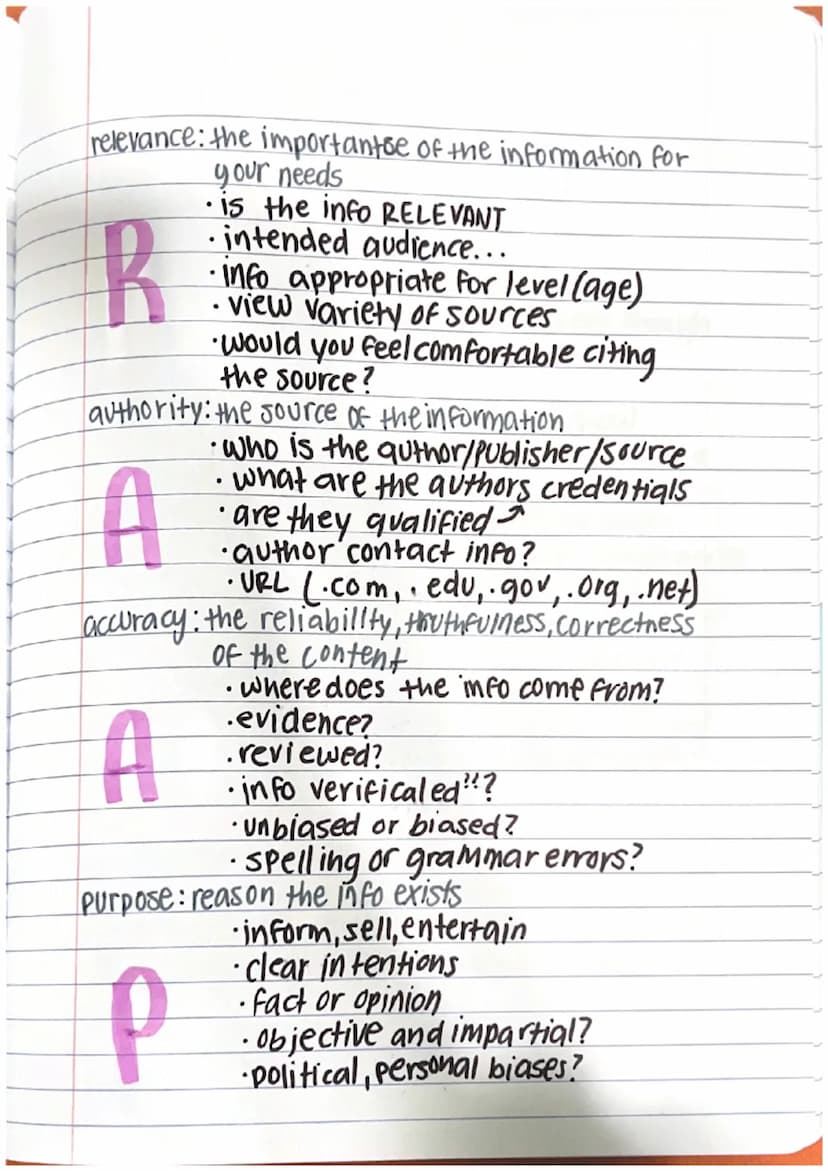 relevance: the importantse of the information for
your needs
· is the info RELEVANT
· intended audience...
R
· info appropriate for level (age)
· view variety of sources
· would you feel comfortable citing
the source?
authority: the source of the information
· who is the author/publisher/source
· what are the authors credentials
A
· are they qualified ↗
· author contact info?
· URL (.com, .edu, .gov, .org, .net)
accuracy: the reliability, truthfulness, correctness
of the content
· where does the info come from?
· evidence?
A
· reviewed?
· info verificaled"?
· unbiased or biased?
· spelling or grammar errors?
purpose: reason the info exists
· inform, sell, entertain
· clear intentions
P
· fact or opinion
· objective and impartial?
· political, personal biases?